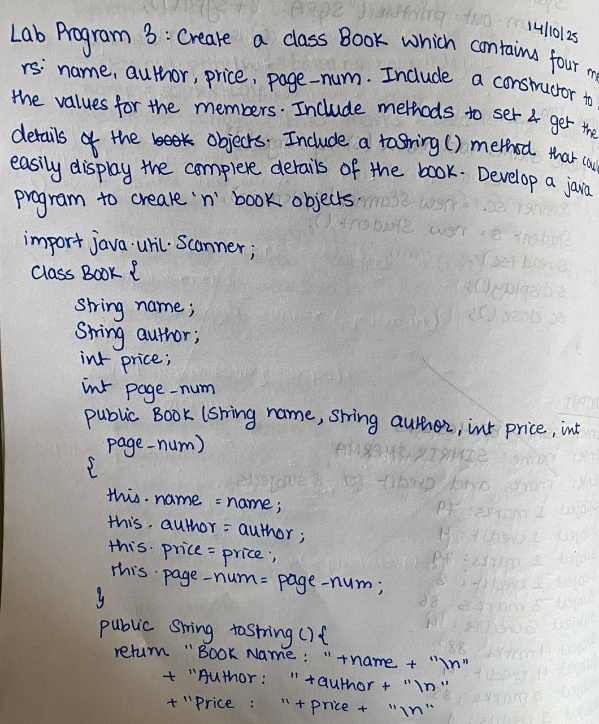 14/10/25
Lab Program 3: Create a class Book which contains four me
rs: name, author, price, page_num. Include a constructor to
the values for the members. Include methods to set & get the
details of the book objects. Include a toString() method that cou
easily display the complete details of the book. Develop a java
program to create 'n' book objects.
import java.util.Scanner;
class Book {
String name;
String author;
int price;
int page_num
public Book (String name, String author, int price, int
page_num)
{
this.name = name;
this.author = author;
this.price = price;
this.page_num = page_num;
}
public String toString() {
return "Book Name: " + name + "\n"
+ "Author: " + author + "\n"
+ "Price : " + price + "\n"